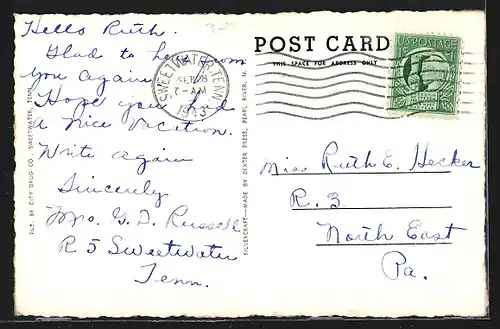 Hello Ruth.
Glad to hear from
you again.
Hope you had
a nice vacation.
Write again
Sincerely
Mrs. G. D. Russell
R 5 Sweetwater
Tenn.
PUB. BY CITY DRUG CO. SWEETWATER, TENN.
SWEETWATER, TENN.
SEP 8
7-AM
1943
SILVERCRAFT—MADE BY DEXTER PRESS, PEARL RIVER, N.
POST CARD
THIS SPACE FOR ADDRESS ONLY
U.S. POSTAGE
Miss Ruth E. Hecker
R. 3.
North East
Pa.